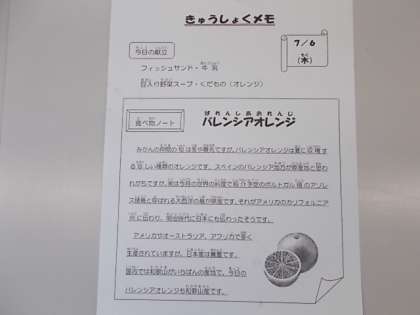 きゅうしょくメモ
7/6
(木)
今日の献立
フィッシュサンド・牛乳
豆入り野菜スープ・くだもの(オレンジ)
食べ物ノート
ばれんしあおれんじ
バレンシアオレンジ
みかんの仲間の旬は冬や春先ですが、バレンシアオレンジは夏に収穫す
る珍しい種類のオレンジです。スペインのバレンシア地方が原産地と思わ
れがちですが、実は今月の世界の料理で紹介予定のポルトガル領のアゾレ
ス諸島と呼ばれる大西洋の島が原産です。それがアメリカのカリフォルニア
州に伝わり、明治時代に日本にも伝わったそうです。
アメリカやオーストラリア、アフリカで多く
生産されていますが、日本産は貴重です。
国内では和歌山がいちばんの産地で、今日の
バレンシアオレンジも和歌山産です。